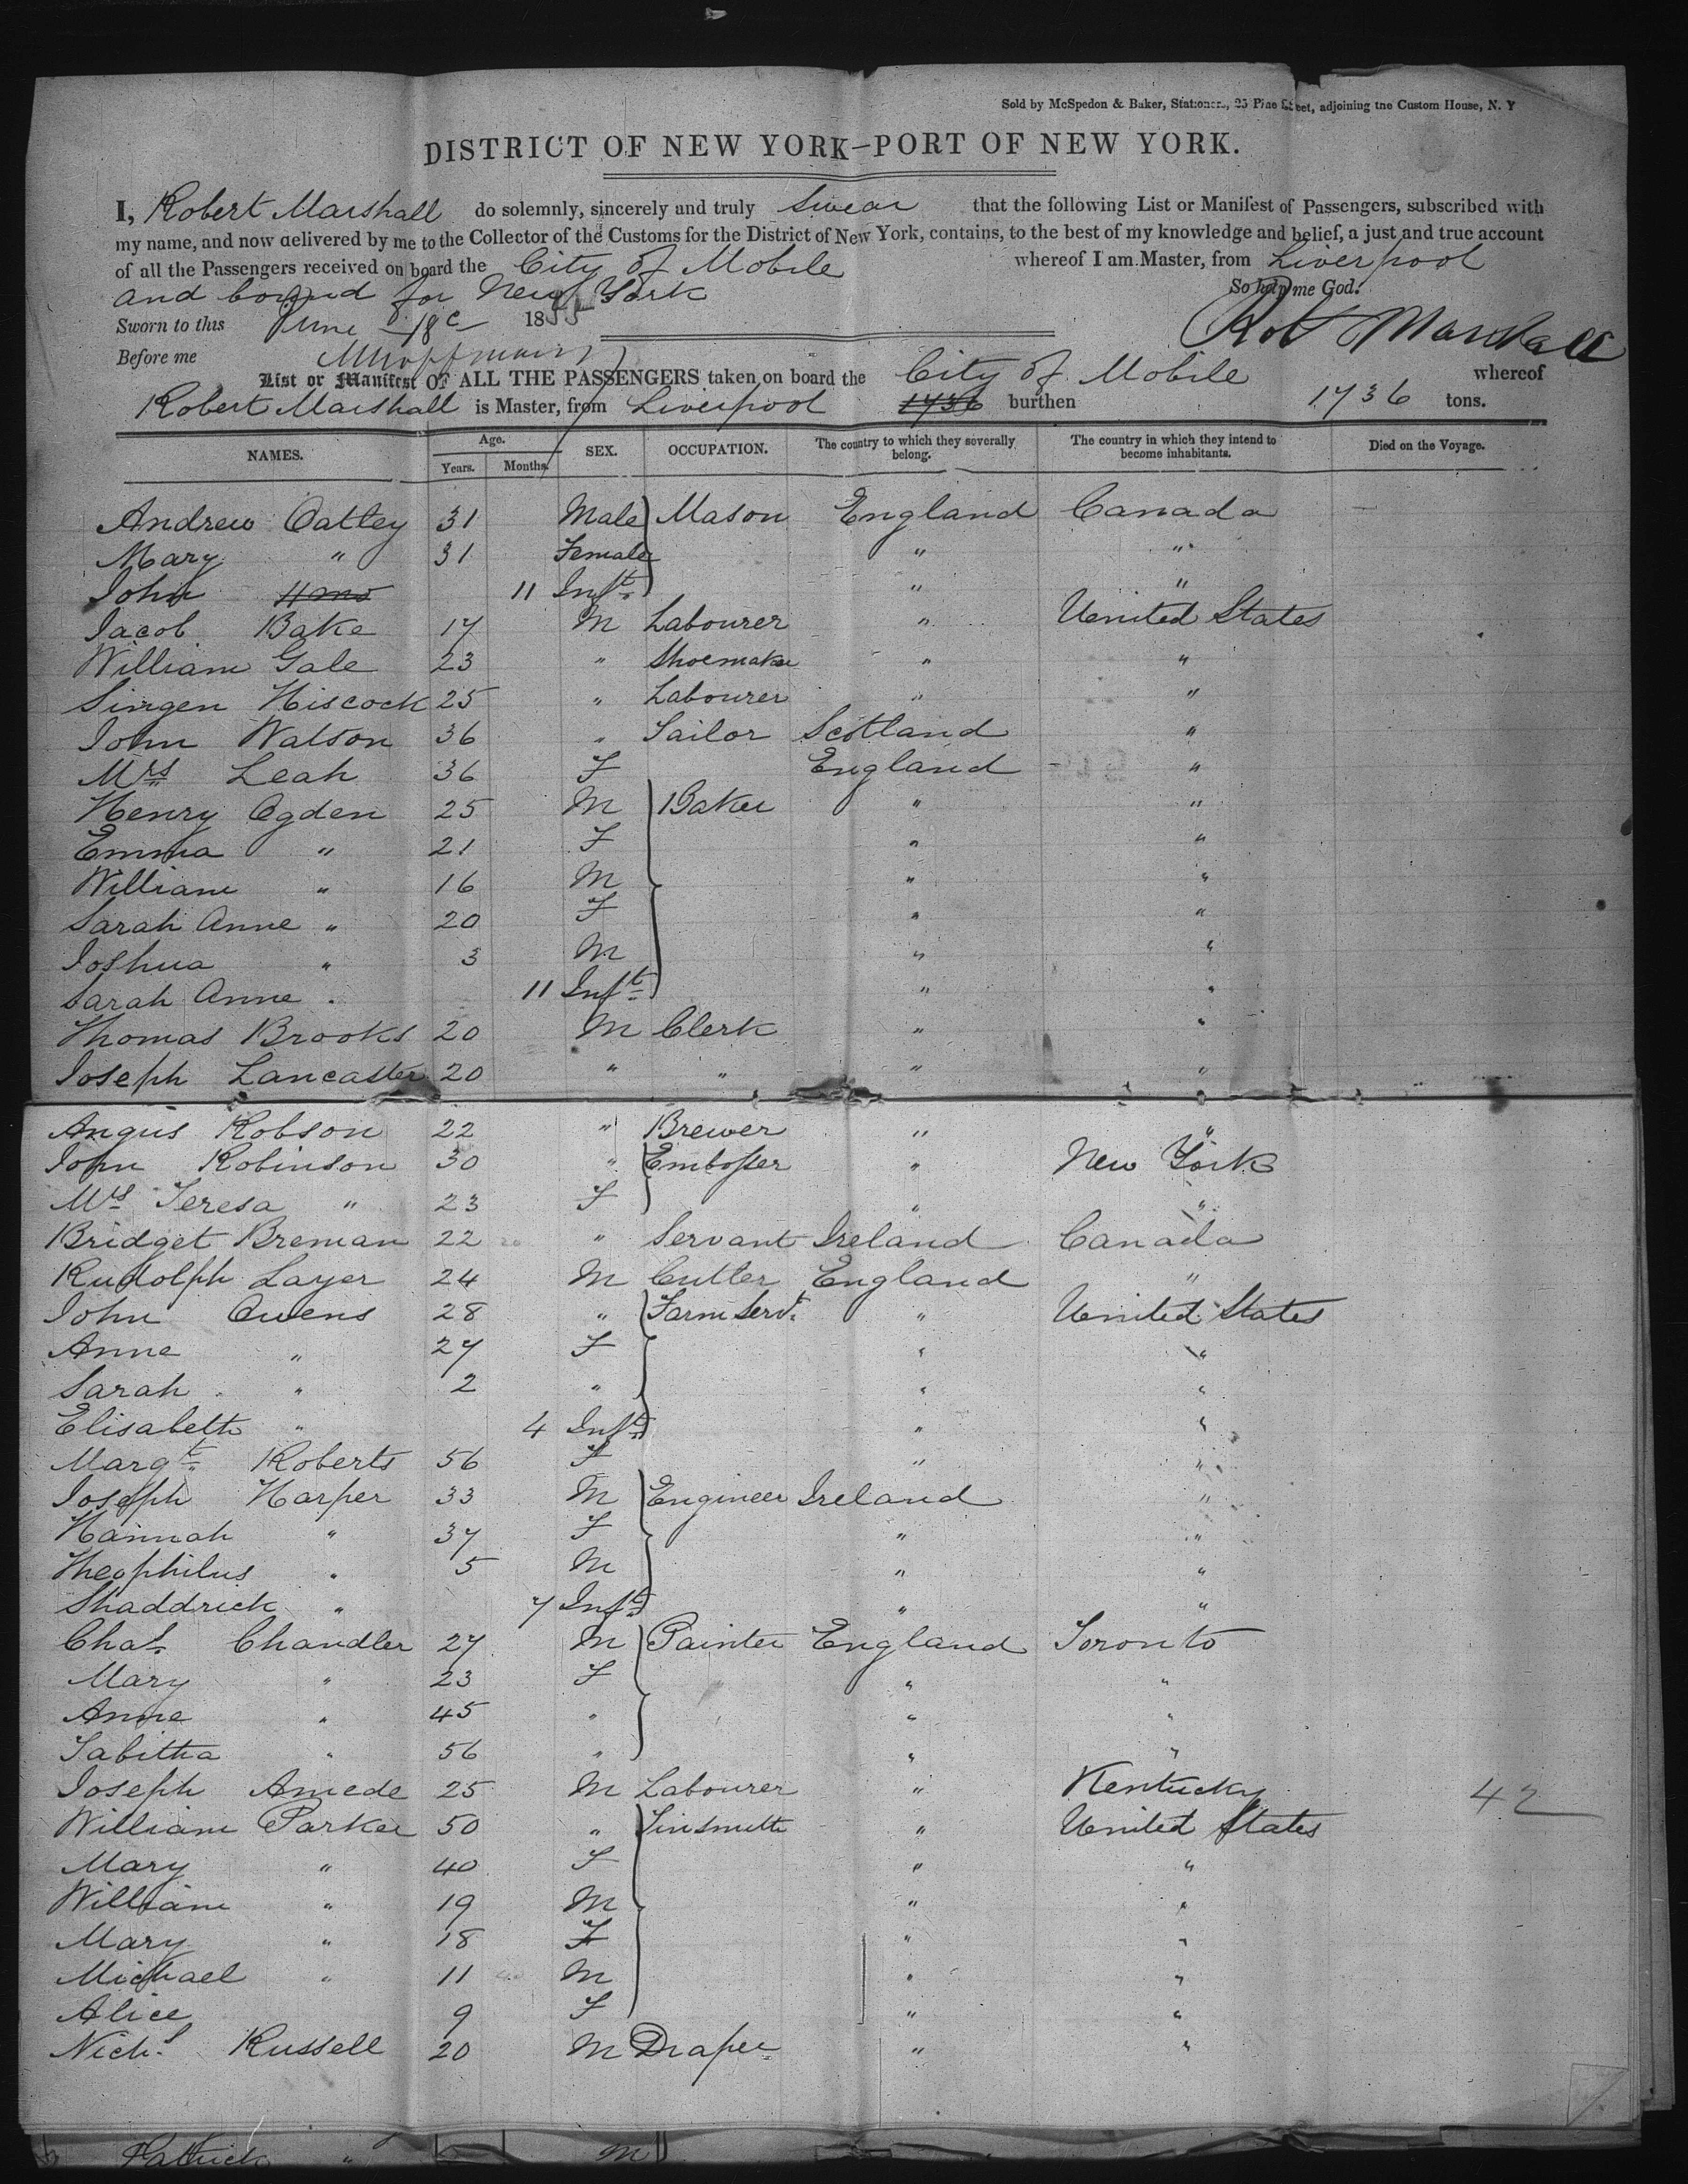 Sold by McSpedon & Baker, Stationers, 25 Pine Street, adjoining the Custom House, N. Y
DISTRICT OF NEW YORK—PORT OF NEW YORK.
I, Robert Marshall do solemnly, sincerely and truly Swear that the following List or Manifest of Passengers, subscribed with
my name, and now delivered by me to the Collector of the Customs for the District of New York, contains, to the best of my knowledge and belief, a just and true account
of all the Passengers received on board the City of Mobile whereof I am Master, from Liverpool
and bound for New York So help me God.
Sworn to this June 18 1855 Robt Marshall
Before me
List or Manifest OF ALL THE PASSENGERS taken on board the City of Mobile whereof
Robert Marshall is Master, from Liverpool 1736 burthen 1736 tons.
NAMES. Age. Years. Months. SEX. OCCUPATION. The country to which they severally belong. The country in which they intend to become inhabitants. Died on the Voyage.
Andrew Oatley 31 Male Mason England Canada
Mary " 31 Female " "
John 11 mo 11 Inft. " "
Jacob Bake 17 M Labourer " United States
William Gale 23 " Shoemaker " "
Singen Hiscock 25 " Labourer " "
John Watson 36 " Sailor Scotland "
Mrs Leah 36 F England "
Henry Ogden 25 M Baker " "
Emma " 21 F " "
William " 16 M " "
Sarah Anne " 20 F " "
Joshua " 3 M " "
Sarah Anne " 11 Inft " "
Thomas Brooks 20 M Clerk " "
Joseph Lancaster 20 " " " "
Angus Robson 22 " Brewer " "
John Robinson 30 " Embosser " New York
Mrs Teresa " 23 F " "
Bridget Breman 22 " Servant Ireland Canada
Rudolph Layer 24 M Cutler England "
John Owens 28 " Farm Servt. " United States
Anne " 27 F " "
Sarah " 2 " " "
Elisabeth " 4 Inft " "
Margt Roberts 56 F " "
Joseph Harper 33 M Engineer Ireland "
Hannah " 37 F " "
Theophilus " 5 M " "
Shaddrick " 7 Inft " "
Chas. Chandler 27 M Painter England Toronto
Mary " 23 F " "
Anne " 45 " " "
Tabitha " 56 " " "
Joseph Amede 25 M Labourer " Kentucky 42
William Parker 50 " Tinsmith " United States
Mary " 40 F " "
William " 19 M " "
Mary " 18 F " "
Michael " 11 M " "
Alice 9 F " "
Nichs. Russell 20 M Draper " "
Patrick " M